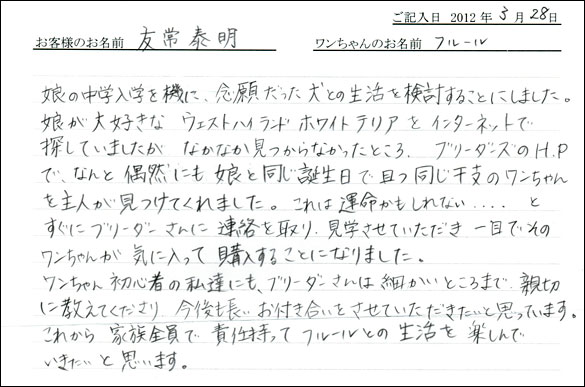 ご記入日 2012 年 3 月 28 日
お客様のお名前 友常泰明 ワンちゃんのお名前 フルール
娘の中学入学を機に、念願だった犬との生活を検討することにしました。
娘が大好きな ウェストハイランドホワイトテリアをインターネットで
探していましたが なかなか見つからなかったところ、ブリーダーズのH.P
で、なんと偶然にも娘と同じ誕生日で且つ同じ干支のワンちゃん
を主人が見つけてくれました。これは運命かもしれない.... と
すぐにブリーダーさんに連絡を取り、見学させていただき 一目でその
ワンちゃんが気に入って購入することになりました。
ワンちゃん初心者の私達にも、ブリーダーさんは細かいところまで、親切
に教えてくださり、今後も長いお付き合いをさせていただきたいと思っています。
これから家族全員で責任持ってフルールとの生活を楽しんで
いきたいと思います。